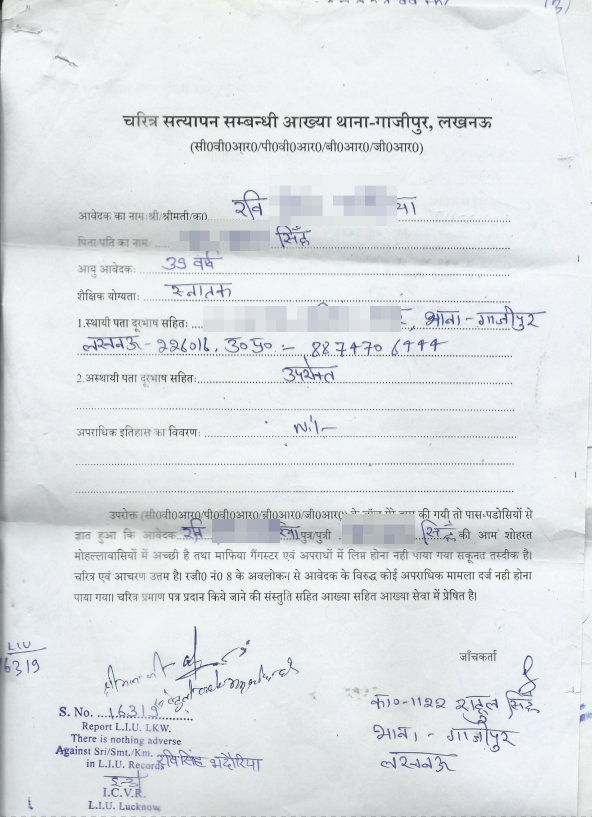 (3)
चरित्र सत्यापन सम्बन्धी आख्या थाना-गाजीपुर, लखनऊ
(सी0वी0आर0/पी0वी0आर0/बी0आर0/जी0आर0)
आवेदक का नाम श्री/श्रीमती/का0 रवि या
पिता/पति का नाम: सिंह
आयु आवेदक: 39 वर्ष
शैक्षिक योग्यता: स्नातक
1.स्थायी पता दूरभाष सहित: , थाना - गाजीपुर
लखनऊ - 226016, उ०प्र० :- 8874706444
2.अस्थायी पता दूरभाष सहित: उपरोक्त
अपराधिक इतिहास का विवरण: Nil-
उपरोक्त (सी0वी0आर0/पी0वी0आर0/बी0आर0/जी0आर0) की गयी तो पास-पडोसियों से
ज्ञात हुआ कि आवेदक रवि पुत्र/पुत्री सिंह की आम शोहरत
मोहल्लावासियों में अच्छी है तथा माफिया गैंगस्टर एवं अपराधों में लिप्त होना नही पाया गया सकूनत तस्दीक है।
चरित्र एवं आचरण उतम है। रजी0 नं0 8 के अवलोकन से आवेदक के विरुद्ध कोई अपराधिक मामला दर्ज नही होना
पाया गया। चरित्र प्रमाण पत्र प्रदान किये जाने की संस्तुति सहित आख्या सहित आख्या सेवा में प्रेषित है।
जाँचकर्ता
LIU
6319
श्रीमान जी
का०-1122 राहुल सिंह
थाना - गाजीपुर
लखनऊ
S. No. 16319
Report L.I.U. LKW.
There is nothing adverse
Against Sri/Smt./Km.
in L.I.U. Records रवि सिंह भदौरिया
I.C.V.R.
L.I.U. Lucknow